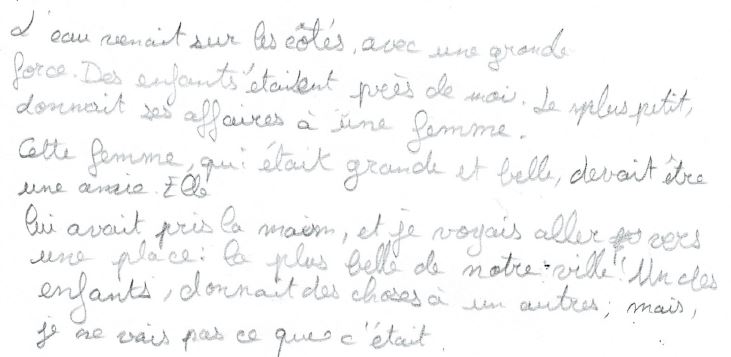 L'eau venait sur les côtés, avec une grande
force. Des enfants étaient près de moi. Le plus petit,
donnait ses affaires à une femme.
Cette femme, qui était grande et belle, devait être
une amie. Elle
lui avait pris la main, et je voyais aller vers
une place : la plus belle de notre ville ! Un des
enfants, donnait des choses à un autres, mais,
je ne vais pas ce que c'était.